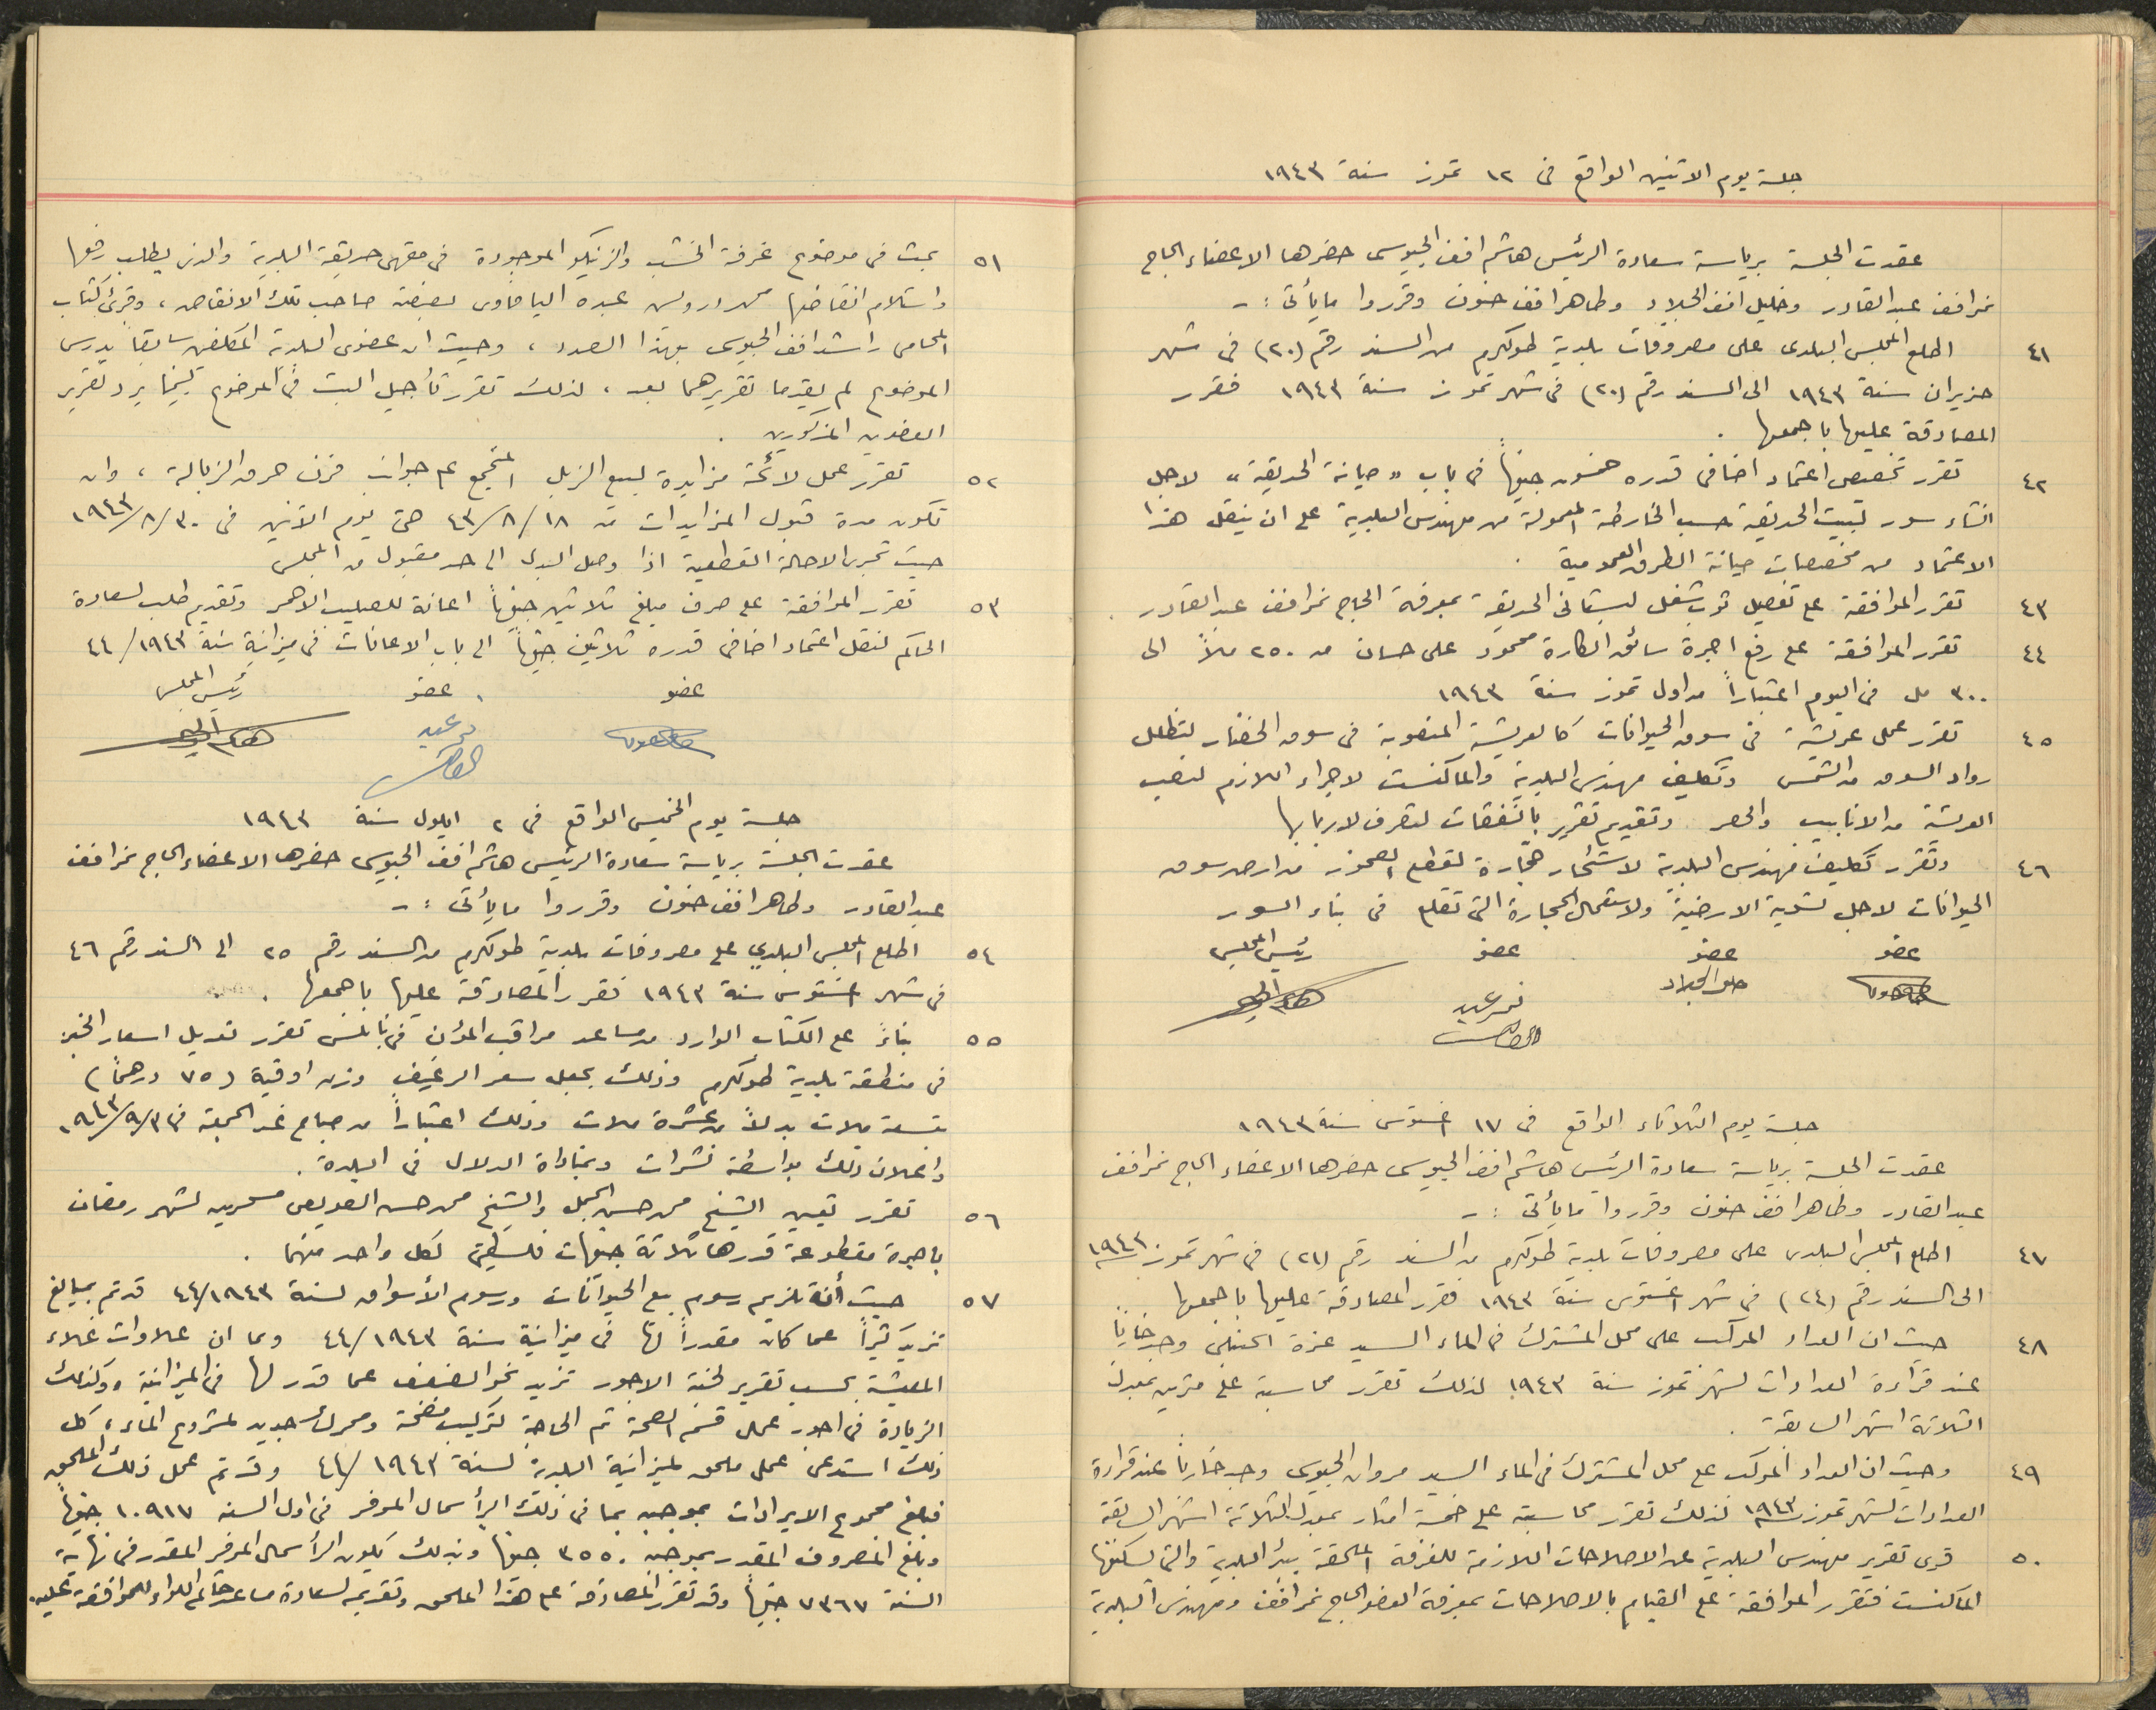 جلسة يوم الاثنين الواقع في ١٢ تموز سنة ١٩٤٣
عقدت الجلسة برياسة سعادة الرئيس هاشم افندي الجيوسي حضرها الاعضاء الحاج
نمر افندي عبد القادر وخليل افندي الجلاد وطاهر افندي حنون وقرروا ما يأتي :-
٤١ اطلع المجلس البلدي على مصروفات بلدية طولكرم من السند رقم (٢٠) في شهر
حزيران سنة ١٩٤٣ الى السند رقم (٢٠) في شهر تموز سنة ١٩٤٣ فقرر
المصادقة عليها باجمعها .
٤٢ تقرر تخصيص اعتماد اضافي قدره خمسون جنيهاً في باب "صيانة الحديقة" لاجل
انشاء سور لبيت الحديقة حسب الخارطة المعمولة من مهندس البلدية على ان ينقل هذا
الاعتماد من مخصصات صيانة الطرق العمومية .
٤٣ تقرر الموافقة على تفصيل ثوب شغل لبستاني الحديقة بمعرفة الحاج نمر افندي عبد القادر .
٤٤ تقرر الموافقة على رفع اجرة سائق الكارة محمود على حسان من ٢٥٠ ملاً الى
٣٠٠ مل في اليوم اعتباراً من اول تموز سنة ١٩٤٣
٤٥ تقرر عمل عريشة في سوق الحيوانات كالعريشة المنصوبة في سوق الخضار لتظلل
رواد السوق من الشمس وتكليف مهندس البلدية والماكنست لاجراء اللازم لنصب
العريشة من الانابيب والحصر وتقديم تقرير بالنفقات لتصرف لاربابها
٤٦ وتقرر تكليف مهندس البلدية لاستئجار حجّارة لقطع الصخور من ارض سوق
الحيوانات لاجل تسوية الارضية ولاستعمال الحجارة التي تقلع في بناء السور
عضو عضو عضو رئيس المجلس
نمر عبد
القادر
جلسة يوم الثلاثاء الواقع في ١٧ اغستوس سنة ١٩٤٣
عقدت الجلسة برياسة سعادة الرئيس هاشم افندي الجيوسي حضرها الاعضاء الحاج نمر افندي
عبد القادر وطاهر افندي حنون وقرروا ما يأتي :-
٤٧ اطلع المجلس البلدي على مصروفات بلدية طولكرم من السند رقم (٢١) في شهر تموز سنة ١٩٤٣
الى السند رقم (٢٤) في شهر اغستوس سنة ١٩٤٣ فقرر المصادقة عليها باجمعها
٤٨ حيث ان العداد المركب على محل المشترك في الماء السيد عزة الحنبلي وجد خارباً
عند قراءة العدادات لشهر تموز سنة ١٩٤٣ لذلك تقرر محاسبته على مترين بمعدل
الثلاثة اشهر السابقة .
٤٩ وحيث ان العداد المركب على محل المشترك في الماء السيد مروان الجيوسي وجد خارباً عند قراءة
العدادات لشهر تموز سنة ١٩٤٣ لذلك تقرر محاسبته على خمسة امتار بمعدل الثلاثة اشهر السابقة
٥٠ قرئ تقرير مهندس البلدية عن الاصلاحات اللازمة للغرفة الملحقة ببئر البلدية والتي يسكنها
الماكنست فتقرر الموافقة على القيام بالاصلاحات بمعرفة العضو الحاج نمر افندي ومهندس البلدية
٥١ بحث في موضوع غرفة الخشب والزينكو الموجودة في مقهى حديقة البلدية والذي يطلب رفعها
واستلام انقاضها محمد درويش عبده اليافاوي بصفته صاحب تلك الانقاض ، وقرئ كتاب
المحامي راشد افندي الجيوسي بهذا الصدد ، وحيث ان عضوي البلدية المكلفين سابقاً بدرس
الموضوع لم يقدما تقريرهما بعد ، لذلك تقرر تأجيل البت في الموضوع لبينما يرد تقرير
العضوين المذكورين .
٥٢ تقرر عمل لائحة مزايدة لبيع الزبل المتجمع على جوانب فرن حرق الزبالة ، وان
تكون مدة قبول المزايدات من ١٨/٨/٤٣ حتى يوم الاثنين في ٣٠/٨/١٩٤٣
حيث تجري الاحالة القطعية اذا وصل البدل الى حد مقبول من المجلس
٥٣ تقرر الموافقة على صرف مبلغ ثلاثين جنيهاً اعانة للصليب الاحمر وتقديم طلب لسعادة
الحاكم لنقل اعتماد اضافي قدره ثلاثين جنيهاً الى باب الاعانات في ميزانية سنة ١٩٤٣/٤٤
عضو عضو رئيس المجلس
جلسة يوم الخميس الواقع في ٢ ايلول سنة ١٩٤٣
عقدت الجلسة برياسة سعادة الرئيس هاشم افندي الجيوسي حضرها الاعضاء الحاج نمر افندي
عبد القادر وطاهر افندي حنون وقرروا ما يأتي :-
٥٤ اطلع المجلس البلدي على مصروفات بلدية طولكرم من السند رقم ٢٥ الى السند رقم ٤٦
في شهر اغستوس سنة ١٩٤٣ فقرر المصادقة عليها باجمعها .
٥٥ بناءً على الكتاب الوارد من مساعد مراقب المؤن في نابلس تقرر تعديل اسعار الخبز
في منطقة بلدية طولكرم وذلك بجعل سعر الرغيف وزن اوقية (٧٥ درهماً)
بتسعة ملات بدلاً من عشرة ملات وذلك اعتباراً من صباح غد الجمعة في ٣/٩/١٩٤٣
واعلان ذلك بواسطة نشرات وبمناداة الدلال في البلدة .
٥٦ تقرر تعيين الشيخ محمد حسن الجمل والشيخ محمد حسن العويصي مسحرين لشهر رمضان
باجرة مقطوعة قدرها ثلاثة جنيهات فلسطينية لكل واحد منهما .
٥٧ حيث أن تلزيم رسوم بيع الحيوانات ورسوم الأسواق لسنة ١٩٤٣/٤٤ قد تم بمبالغ
تزيد كثيراً عما كان مقدراً لها في ميزانية سنة ١٩٤٣/٤٤ وبما ان علاوات غلاء
المعيشة بحسب تقرير لجنة الاجور تزيد نحو الضعف عما قدر لها في الميزانية ، وكذلك
الزيادة في اجور عمال قسم الصحة ثم الحاجة لتركيب مضخة ومحرك جديد لمشروع الماء ، كل
ذلك استدعى عمل ملحق لميزانية البلدية لسنة ١٩٤٣/٤٤ وقد تم عمل ذلك الملحق
فبلغ مجموع الايرادات بموجبه بما في ذلك الرأسمال الموفر في اول السنة ١٠٩١٧ جنيهاً
وبلغ المصروف المقدر بموجبه ٣٥٥٠ جنيهاً وبذلك يكون الرأسمال الموفر المقدر في نهاية
السنة ٧٣٦٧ جنيهاً وقد تقرر المصادقة على هذا الملحق وتقديمه لسعادة مساعد حاكم اللواء للموافقة عليه .